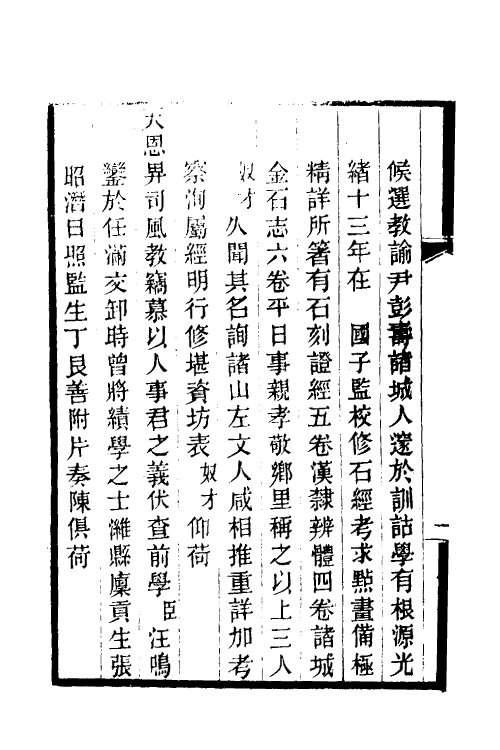 候選教諭尹彭壽諸城人邃於訓詁學有根源光
緒十三年在 國子監校修石經考求點畫備極
精詳所箸有石刻證經五卷漢隸辨體四卷諸城
金石志六卷平日事親孝敬鄉里稱之以上三人
奴才久聞其名詢諸山左文人咸相推重詳加考
察洵屬經明行修堪資坊表奴才仰荷
天恩畀司風教竊慕以人事君之義伏查前學臣汪鳴
鑾於任滿交卸時曾將績學之士濰縣廩貢生張
昭潛日照監生丁艮善附片奏陳俱荷